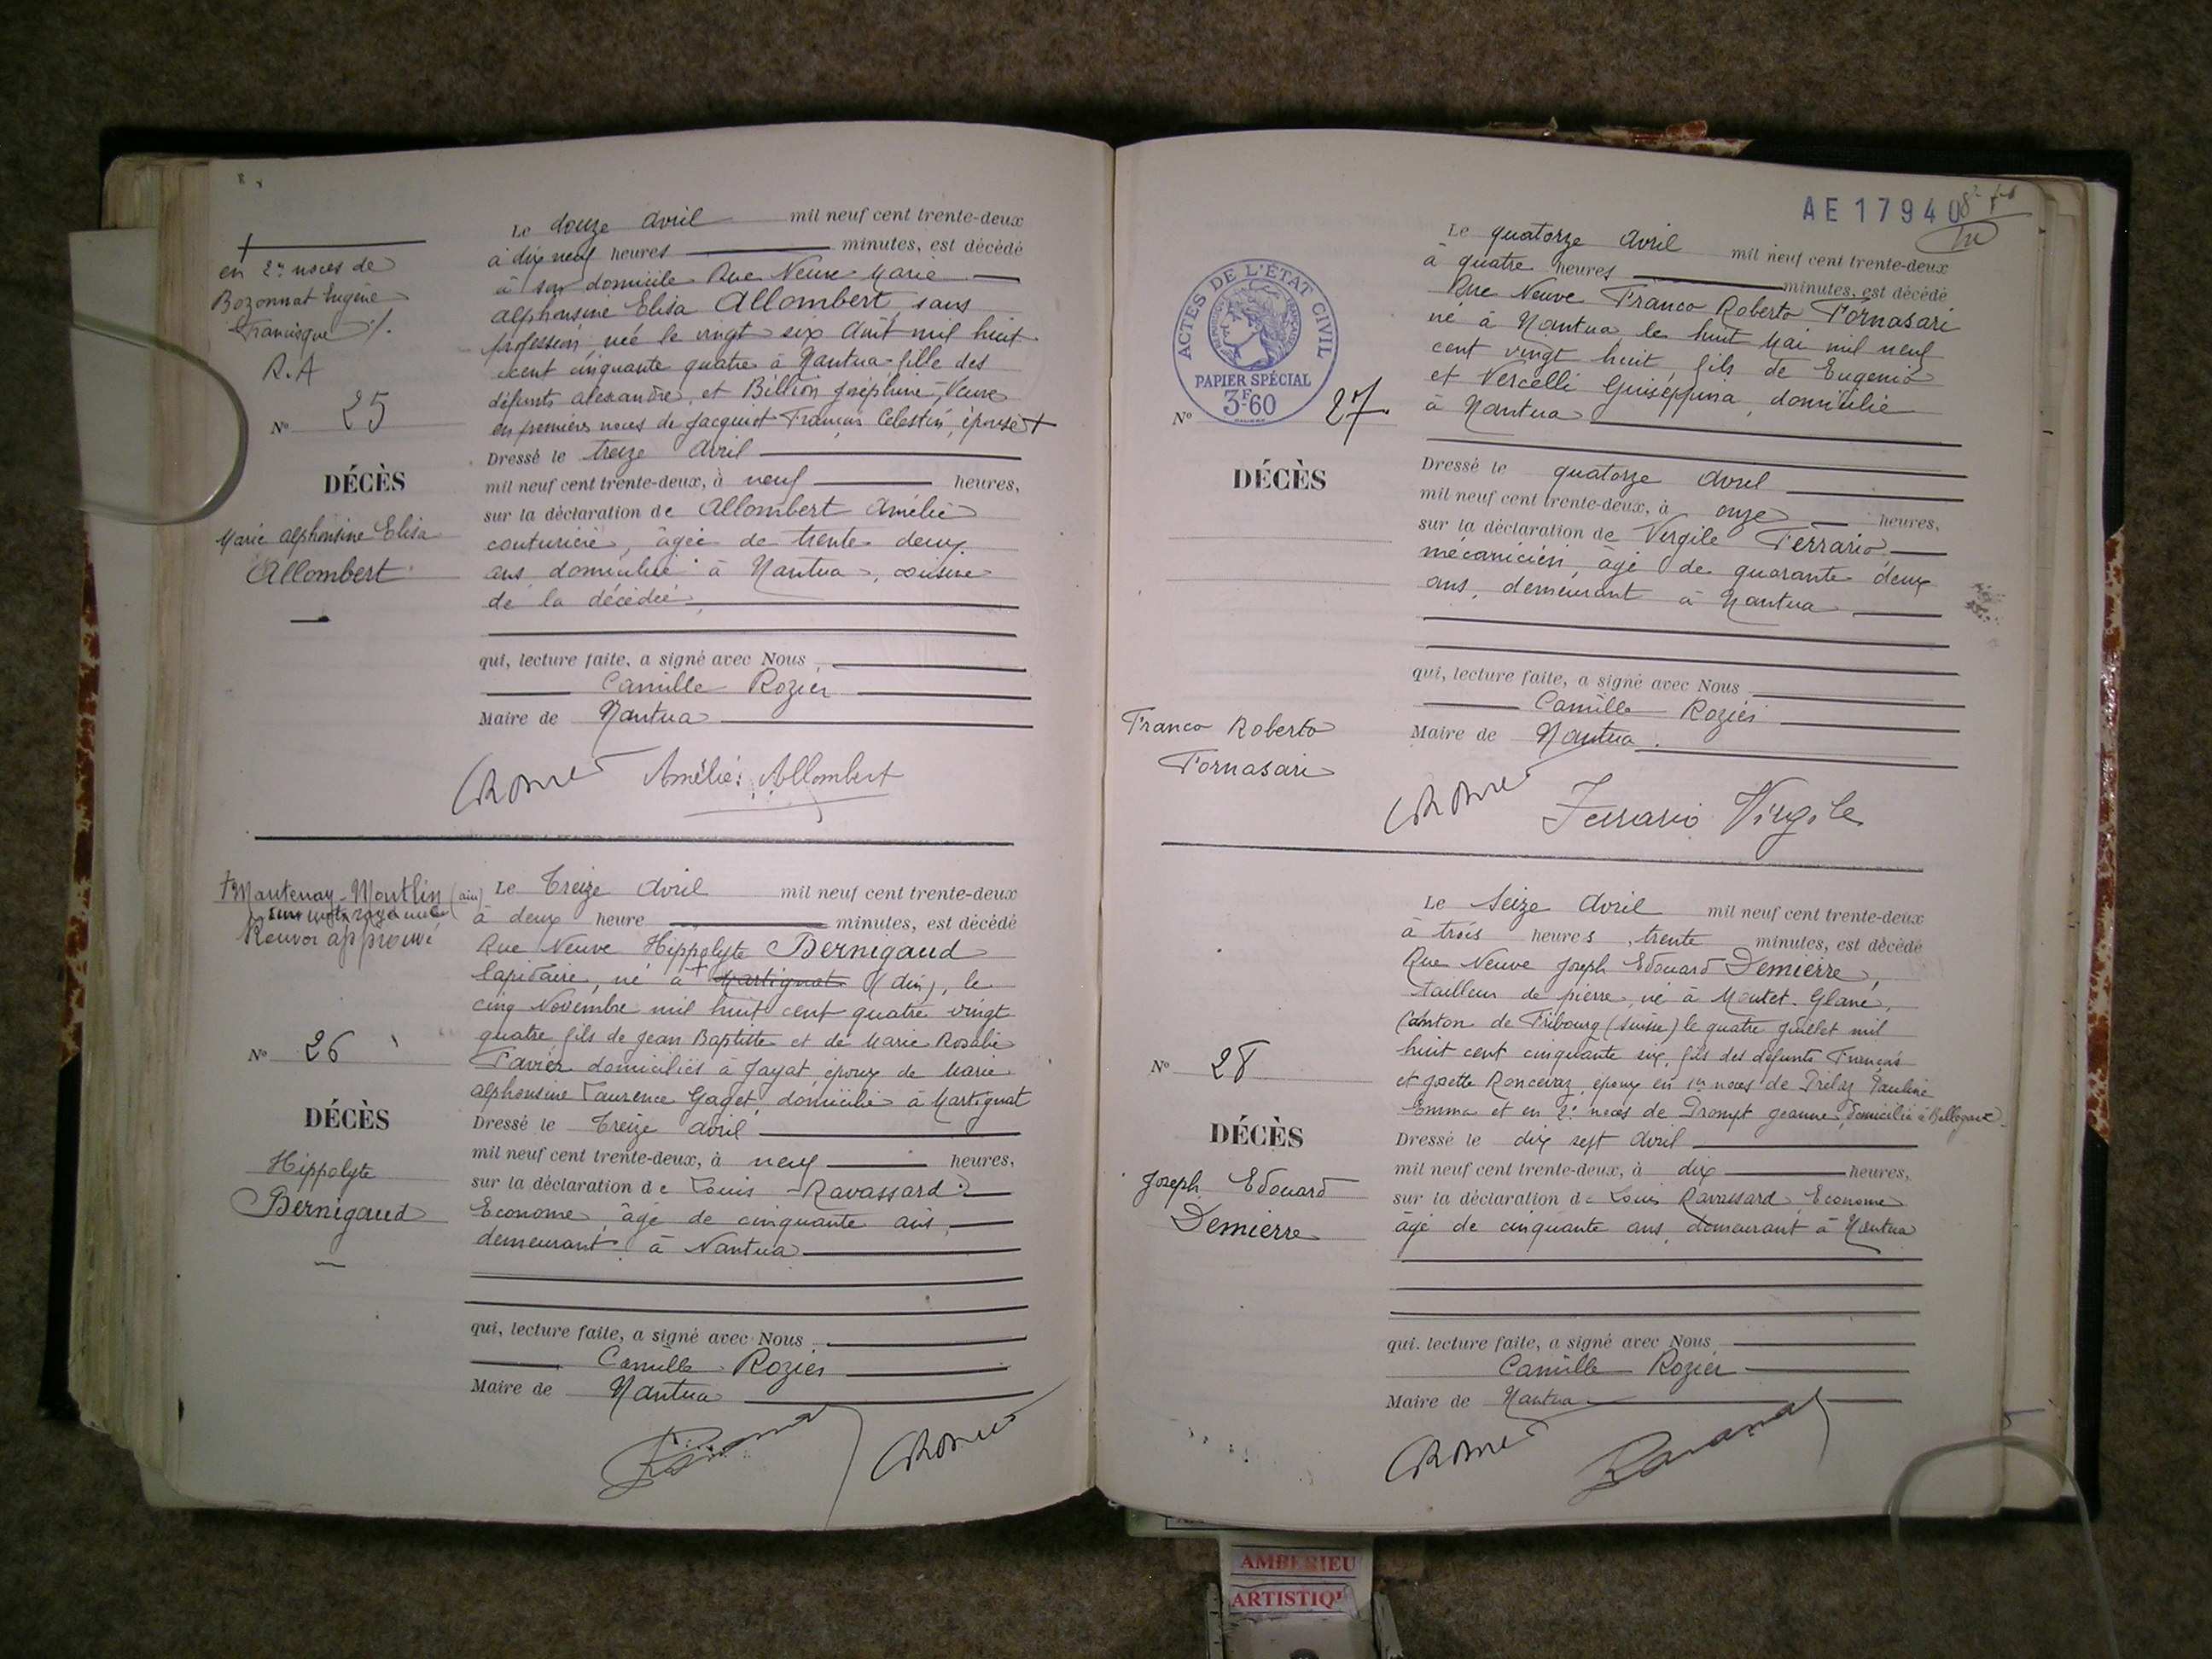 +
en 2es noces de
Bozonnat Eugène
Francisque ./.
R.A
N° 25
DÉCÈS
Marie Alphonsine Elisa
Allombert
Le douze Avril mil neuf cent trente-deux
à dix neuf heures minutes, est décédé
à son domicile Rue Neuve Marie
Alphonsine Elisa Allombert, sans
profession, née le vingt six Août mil huit
cent cinquante quatre à Nantua fille des
défunts Alexandre, et Billion Joséphine, Veuve
en premières noces de Jacquiot François Célestin, épouse +
Dressé le treize Avril
mil neuf cent trente-deux, à neuf heures,
sur la déclaration de Allombert Amélie
couturière, âgée de trente deux
ans domiciliée à Nantua, cousine
de la décédée
qui, lecture faite, a signé avec Nous
Camille Rozier
Maire de Nantua
Amélie Allombert
+ Mantenay-Montlin (ain)
un mot rayé nul
Renvoi approuvé
N° 26
DÉCÈS
Hippolyte
Bernigaud
Le Treize Avril mil neuf cent trente-deux
à deux heure minutes, est décédé
Rue Neuve Hippolyte Bernigaud
lapidaire, né à + Martignat (Ain), le
cinq Novembre mil huit cent quatre vingt
quatre fils de Jean Baptiste et de Marie Rosalie
Pavier domiciliés à Jayat, époux de Marie
Alphonsine Laurence Gaget, domicilié à Martignat
Dressé le Treize avril
mil neuf cent trente-deux, à neuf heures,
sur la déclaration de Louis Ravassard
Econome, âgé de cinquante ans,
demeurant à Nantua
qui, lecture faite, a signé avec Nous
Camille Rozier
Maire de Nantua
AE17940
ACTES DE L'ÉTAT CIVIL
PAPIER SPÉCIAL
3F60
N° 27
DÉCÈS
Franco Roberto
Fornasari
Le quatorze Avril mil neuf cent trente-deux
à quatre heures minutes, est décédé
Rue Neuve Franco Roberto Fornasari
né à Nantua le huit Mai mil neuf
cent vingt huit, fils de Eugenio
et Vercelli Guiseppina, domicilié
à Nantua
Dressé le quatorze Avril
mil neuf cent trente-deux, à onze heures,
sur la déclaration de Vergile Ferrario
mécanicien, âgé de quarante deux
ans, demeurant à Nantua
qui, lecture faite, a signé avec Nous
Camille Rozier
Maire de Nantua.
Ferrario Virgile
N° 28
DÉCÈS
Joseph Edouard
Demierre
Le Seize Avril mil neuf cent trente-deux
à trois heures, trente minutes, est décédé
Rue Neuve Joseph Edouard Demierre,
tailleur de pierre, né à Montet-Glane,
Canton de Fribourg (Suisse) le quatre juillet mil
huit cent cinquante six, fils des défunts François
et Josette Roncevaz, époux en 1res noces de Prélaz Pauline
Emma et en 2e noces de Prompt Jeanne, domicilié à Bellegarde
Dressé le dix sept Avril
mil neuf cent trente-deux, à dix heures,
sur la déclaration de Louis Ravassard, Econome
âgé de cinquante ans, demeurant à Nantua
qui, lecture faite, a signé avec Nous
Camille Rozier
Maire de Nantua
AMBERIEU
ARTISTIQU